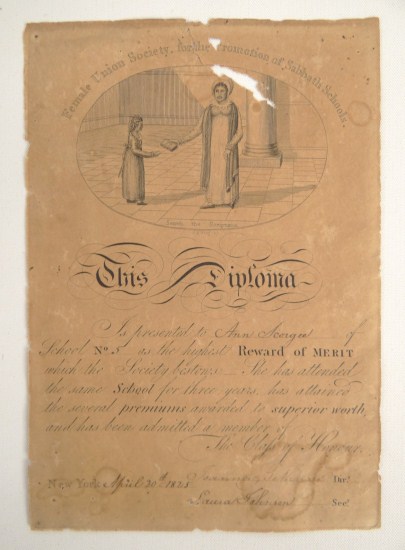 Female Union Society, for the Promotion of Sabbath Schools.
Search the Scriptures
This Diploma
Is presented to Ann of
School No. 5 as the highest Reward of MERIT
which the Society bestows. She has attended
the same School for three years, has attained
the several premiums awarded to superior worth,
and has been admitted a member of
The Class of Honour.
New York April 30th 1821 Dirs
Secy